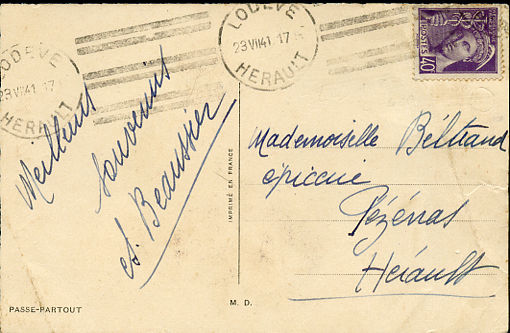 LODEVE
23 VII 41 17
HERAULT
LODEVE
23 VII 41 17
HERAULT
POSTES 40
Meilleurs
souvenirs
Beaussier
IMPRIMÉ EN FRANCE
Mademoiselle Beltrand
épicerie
Pézénas
Hérault
PASSE-PARTOUT
M. D.